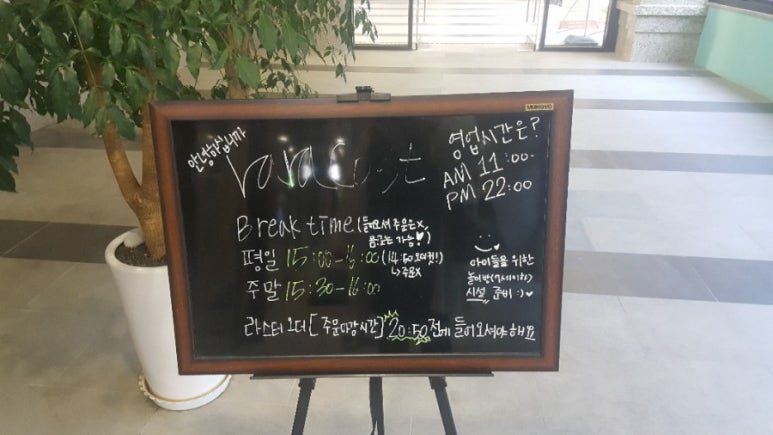 안녕하십니까
VaVaCo
영업시간은?
AM 11:00.
PM 22:00
Break time (들어오셔 주문은X,
음료는 가능♥)
평일 15:00-16:00 (14:50
↳주문X
주말 15:30-16:00
아이들을 위한
놀이방(7세이하)
시설 준비 :) ♥
라스터오더 [주문마감시간] 20:50전에 들어오셔야해요